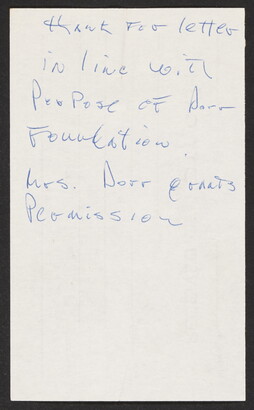 thank for letter
in line with
Purpose of Dorr
Foundation.
Mrs. Dorr grants
Permission